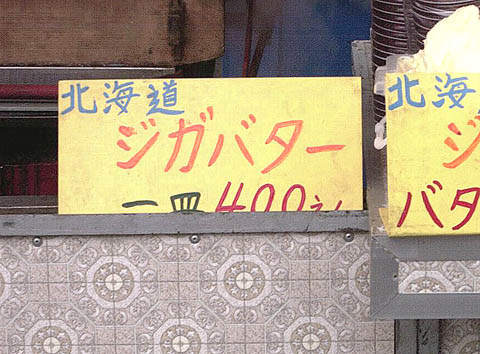 北海道
ジガバター
一皿400円
北海
ジ
バタ